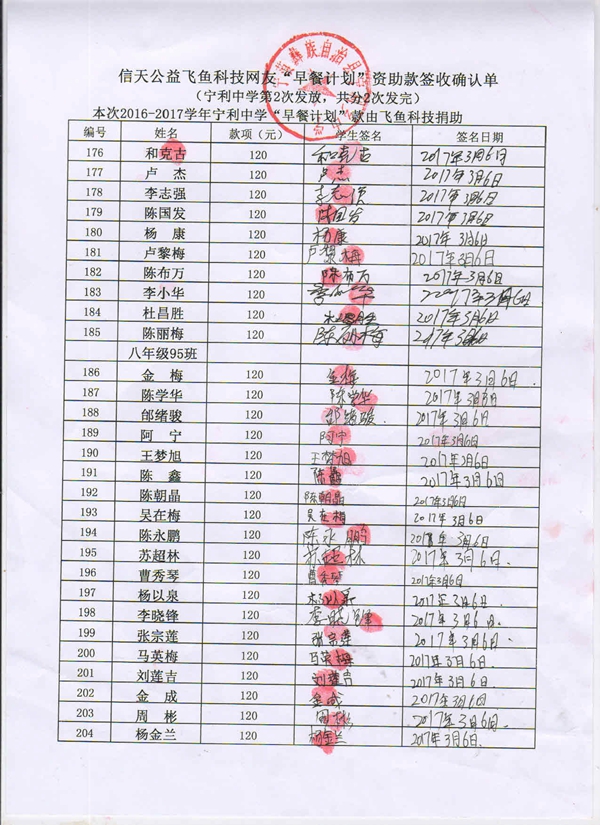 信天公益飞鱼科技网友“早餐计划”资助款签收确认单
（宁利中学第2次发放，共分2次发完）
本次2016-2017学年宁利中学“早餐计划”款由飞鱼科技捐助
编号 姓名 款项（元） 学生签名 签名日期
176 和克古 120 和克古 2017年3月6日
177 卢 杰 120 卢杰 2017年3月6日
178 李志强 120 李志强 2017年3月6日
179 陈国发 120 陈国发 2017年3月6日
180 杨 康 120 杨康 2017年3月6日
181 卢黎梅 120 卢黎梅 2017年3月6日
182 陈布万 120 陈布万 2017年3月6日
183 李小华 120 李小华 2017年3月6日
184 杜昌胜 120 杜昌胜 2017年3月6日
185 陈丽梅 120 陈丽梅 2017年3月6日
八年级95班
186 金 梅 120 金梅 2017年3月6日
187 陈学华 120 陈学华 2017年3月6日
188 邰绪骏 120 邰绪骏 2017年3月6日
189 阿 宁 120 阿宁 2017年3月6日
190 王梦旭 120 王梦旭 2017年3月6日
191 陈 鑫 120 陈鑫 2017年3月6日
192 陈朝晶 120 陈朝晶 2017年3月6日
193 吴在梅 120 吴在梅 2017年3月6日
194 陈永鹏 120 陈永鹏 2017年3月6日
195 苏超林 120 苏超林 2017年3月6日
196 曹秀琴 120 曹秀琴 2017年3月6日
197 杨以泉 120 2017年3月6日
198 李晓锋 120 李晓锋 2017年3月6日
199 张宗莲 120 张宗莲 2017年3月6日
200 马英梅 120 马英梅 2017年3月6日
201 刘莲吉 120 刘莲吉 2017年3月6日
202 金 成 120 金成 2017年3月6日
203 周 彬 120 周彬 2017年3月6日
204 杨金兰 120 杨金兰 2017年3月6日